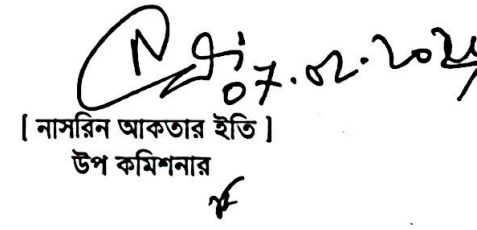 07.02.202
[ নাসরিন আকতার ইতি ]
উপ কমিশনার